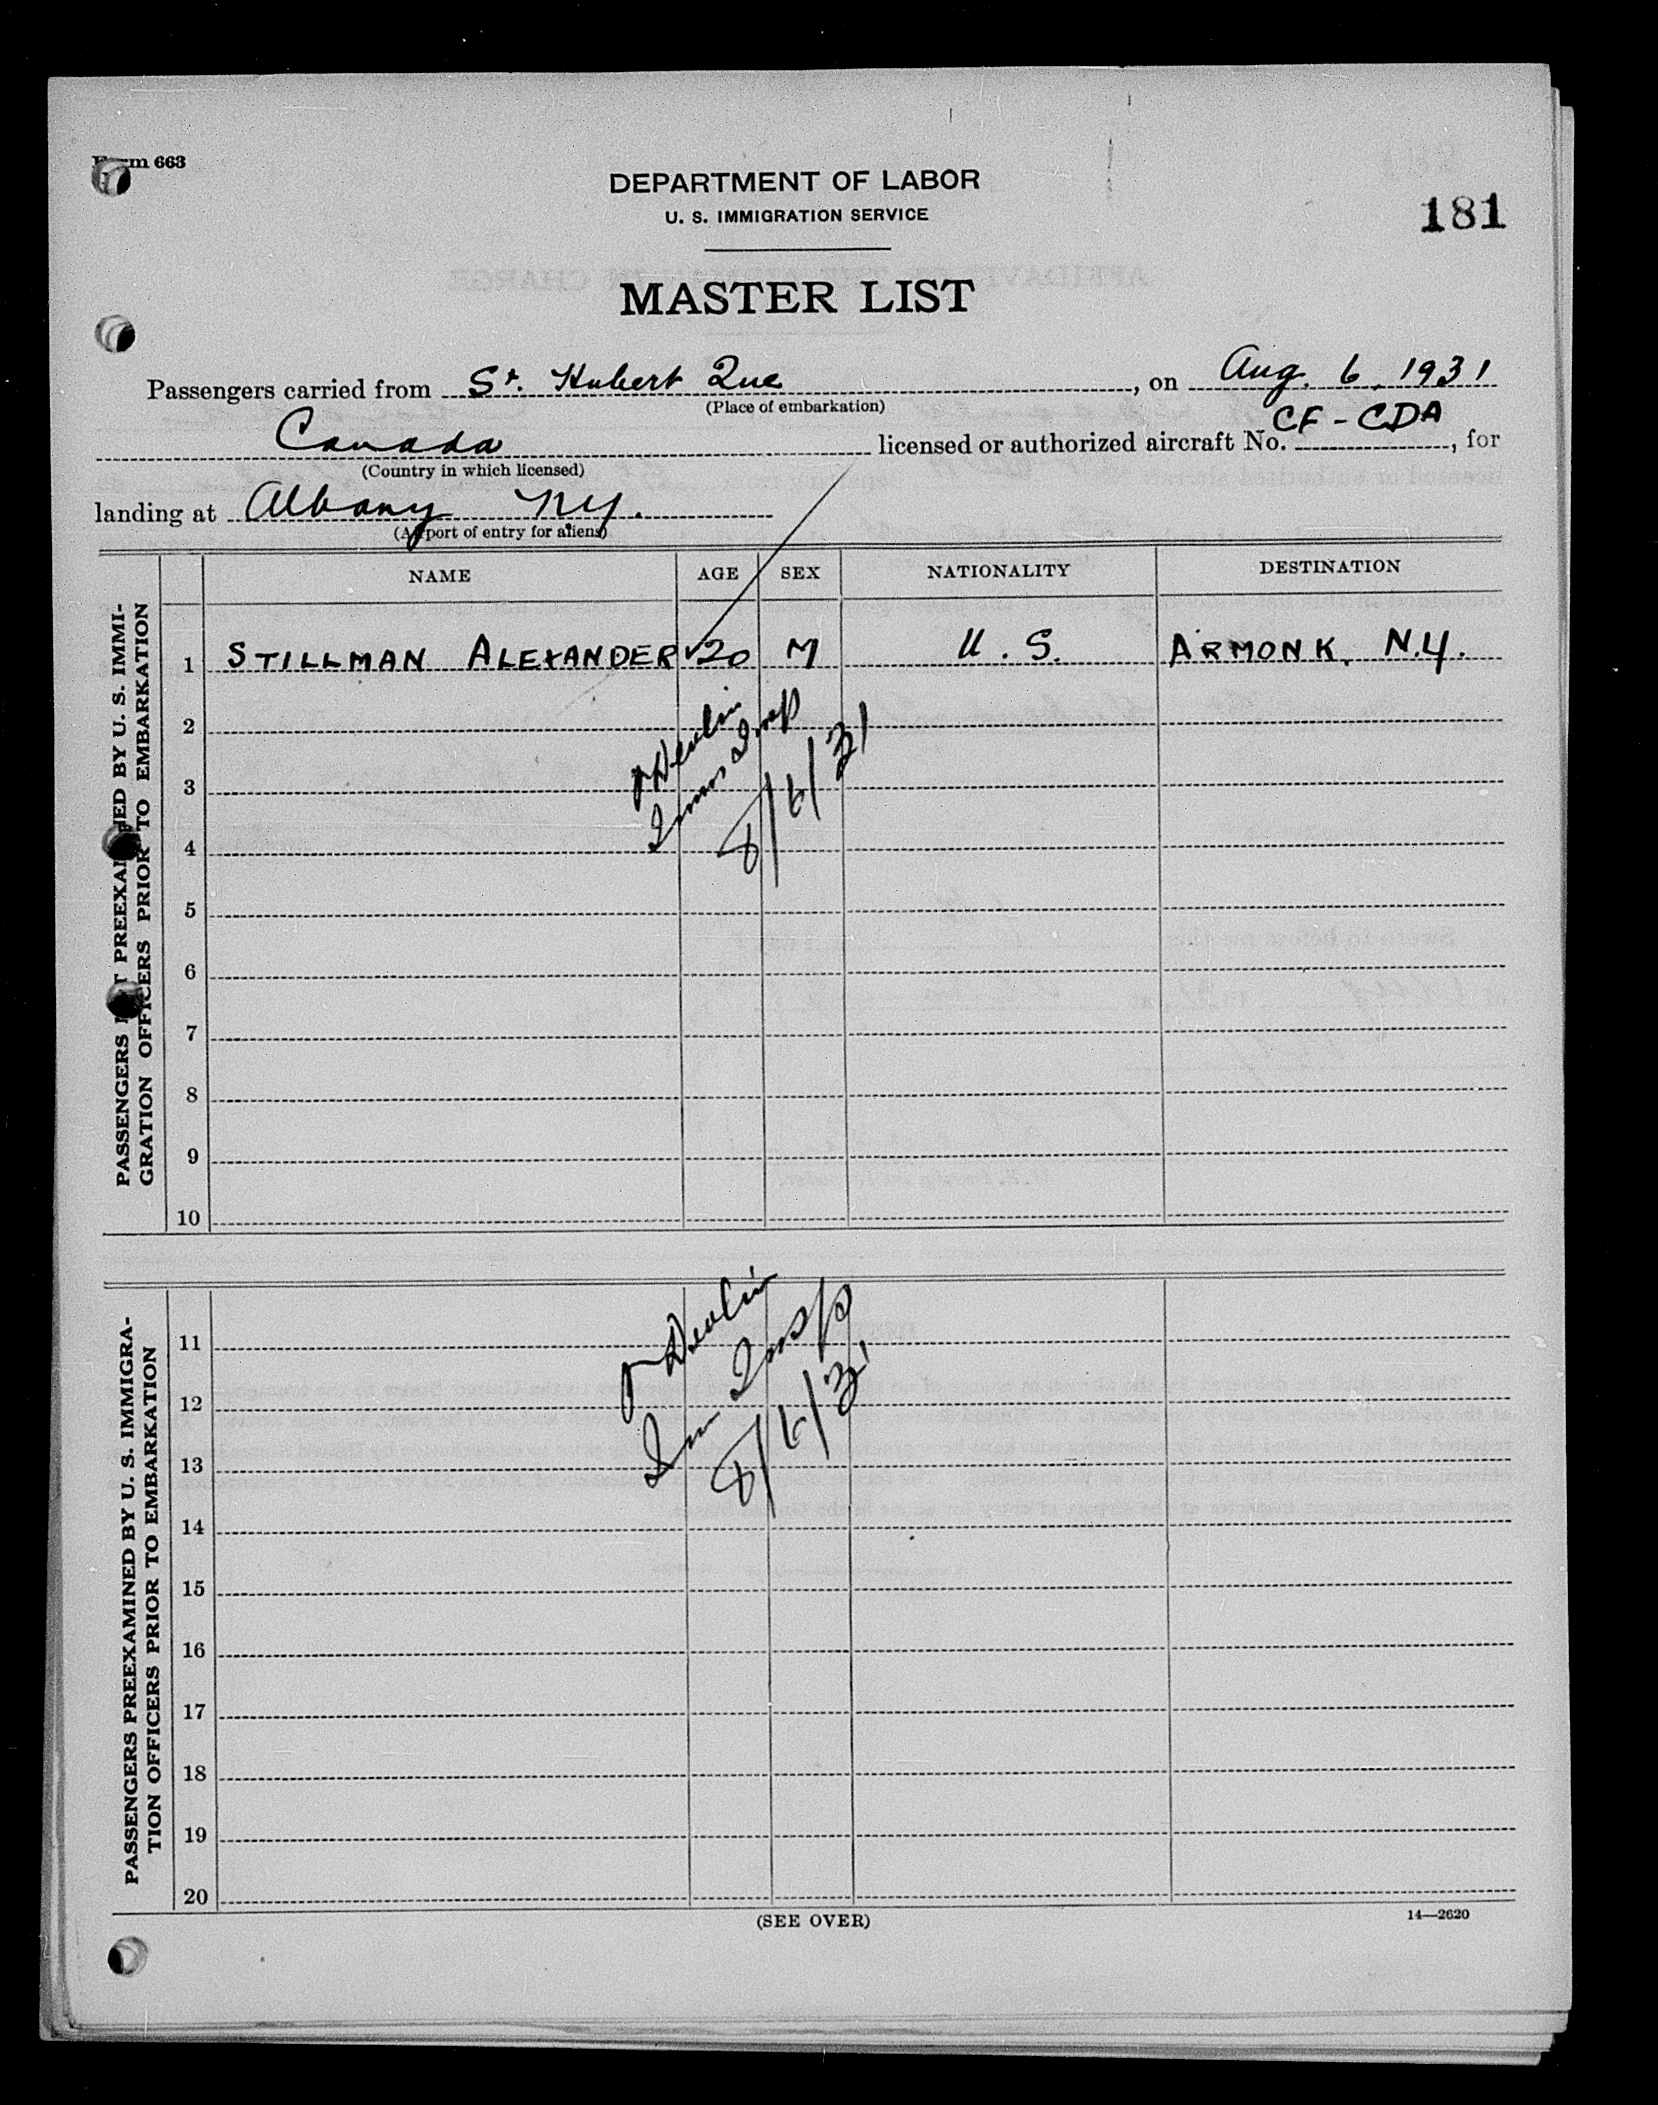 Form 663
DEPARTMENT OF LABOR
U. S. IMMIGRATION SERVICE
181
MASTER LIST
Passengers carried from St. Hubert Que, on Aug. 6, 1931
(Place of embarkation)
Canada licensed or authorized aircraft No. CF-CDA, for
(Country in which licensed)
landing at Albany NY.
(Airport of entry for aliens)
NAME AGE SEX NATIONALITY DESTINATION
PASSENGERS NOT PREEXAMINED BY U. S. IMMI-
GRATION OFFICERS PRIOR TO EMBARKATION
1 STILLMAN ALEXANDER 20 M U.S. ARMONK, N.Y.
2
3
4
Devlin
Imm Insp
8/6/31
5
6
7
8
9
10
PASSENGERS PREEXAMINED BY U. S. IMMIGRA-
TION OFFICERS PRIOR TO EMBARKATION
Devlin
Imm Insp
8/6/31
11
12
13
14
15
16
17
18
19
20
(SEE OVER)
14—2620